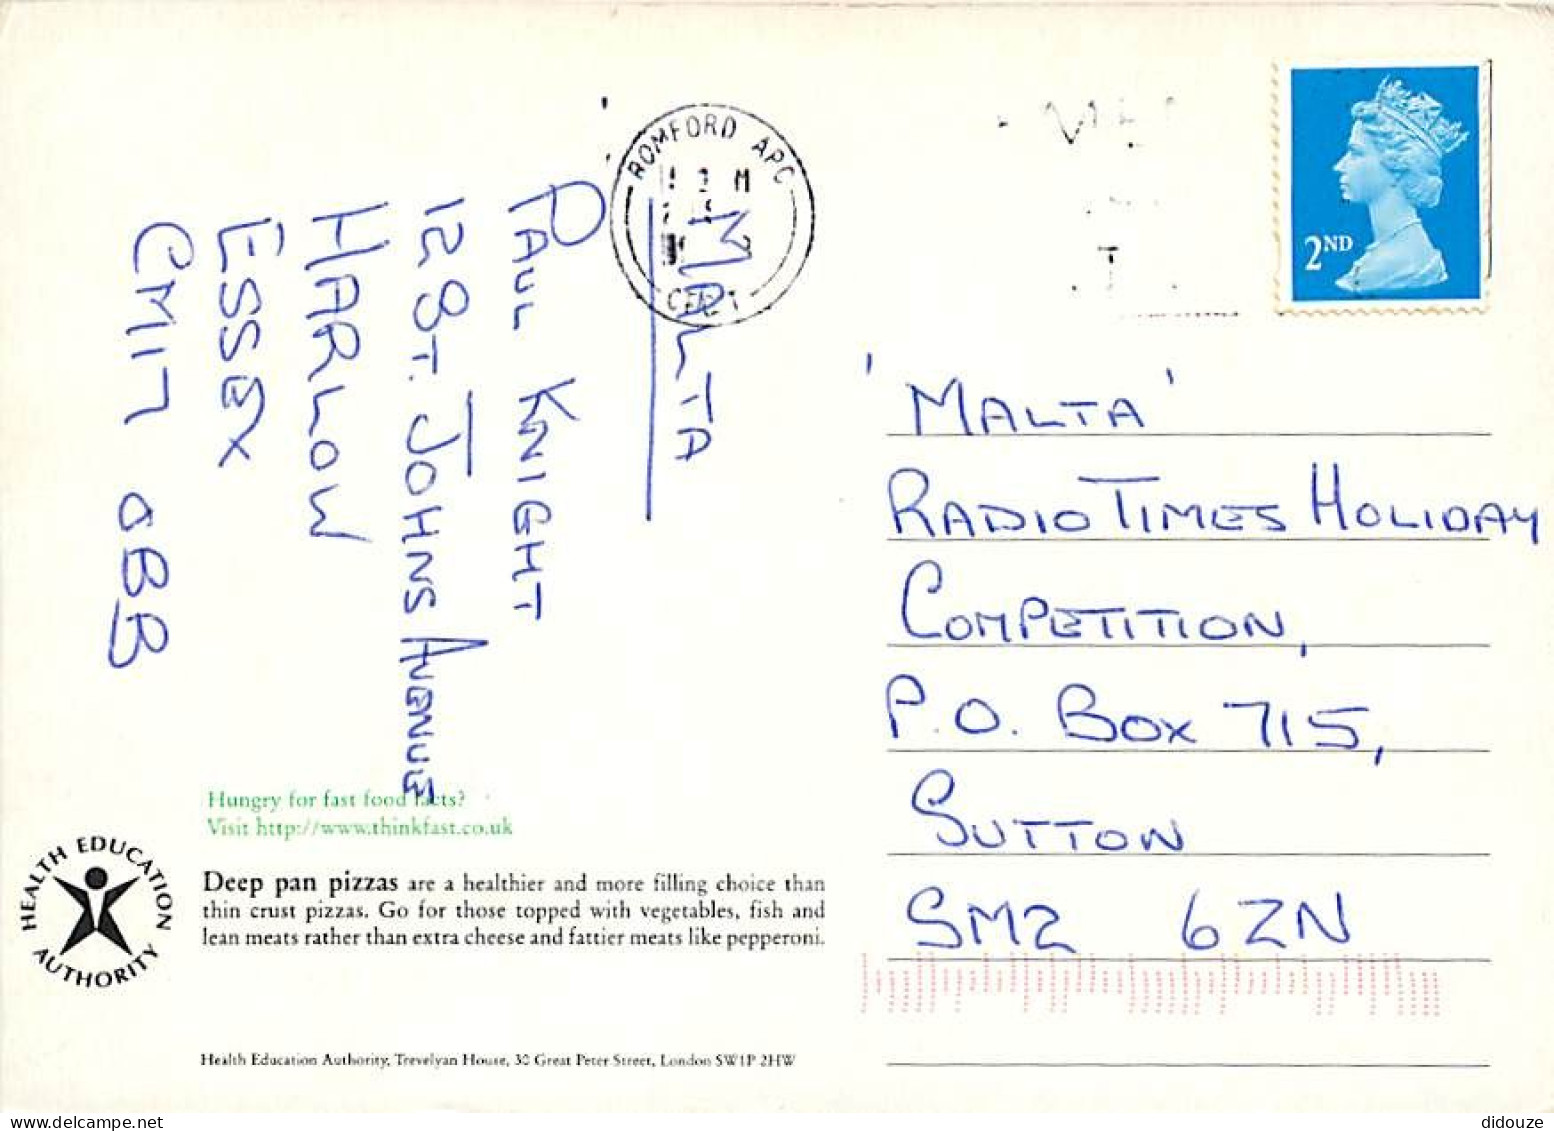 MALTA
PAUL KNIGHT
12 ST. JOHNS AVENUE
HARLOW
ESSEX
CM17 0BB
ROMFORD APC
2ND
'MALTA'
RADIO TIMES HOLIDAY
COMPETITION,
P.O. BOX 715,
SUTTON
SM2 6ZN
Hungry for fast food facts?
Visit http://www.thinkfast.co.uk
HEALTH EDUCATION AUTHORITY
Deep pan pizzas are a healthier and more filling choice than
thin crust pizzas. Go for those topped with vegetables, fish and
lean meats rather than extra cheese and fattier meats like pepperoni.
Health Education Authority, Trevelyan House, 30 Great Peter Street, London SW1P 2HW
didouze